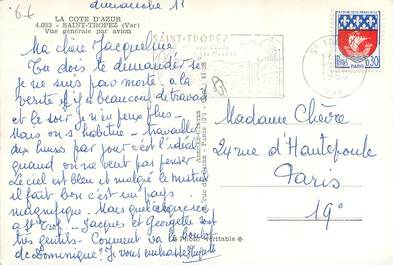 dimanche 11
LA COTE D'AZUR
4.033 - SAINT-TROPEZ (Var)
Vue générale par avion
Ma chère Jacqueline
Tu dois te demander si
je ne suis pas morte - à la
vérité il y a beaucoup de travail
et le soir je n'en peux plus -
Mais on s'habitue - travailler
dix heures par jour c'est l'idéal
quand on ne veut pas penser
Le ciel est bleu et malgré le mistral
il fait bon c'est un pays
magnifique - Mais quelle
à St Trop - Jacques et Georgette sont
très gentils - Comment va le
de Dominique? Je vous embrasse
SAINT-TROPEZ
PARIS
0,30
VAR
Madame Chèvre
24 rue d'Hautpoule
Paris
19°
Photo véritable